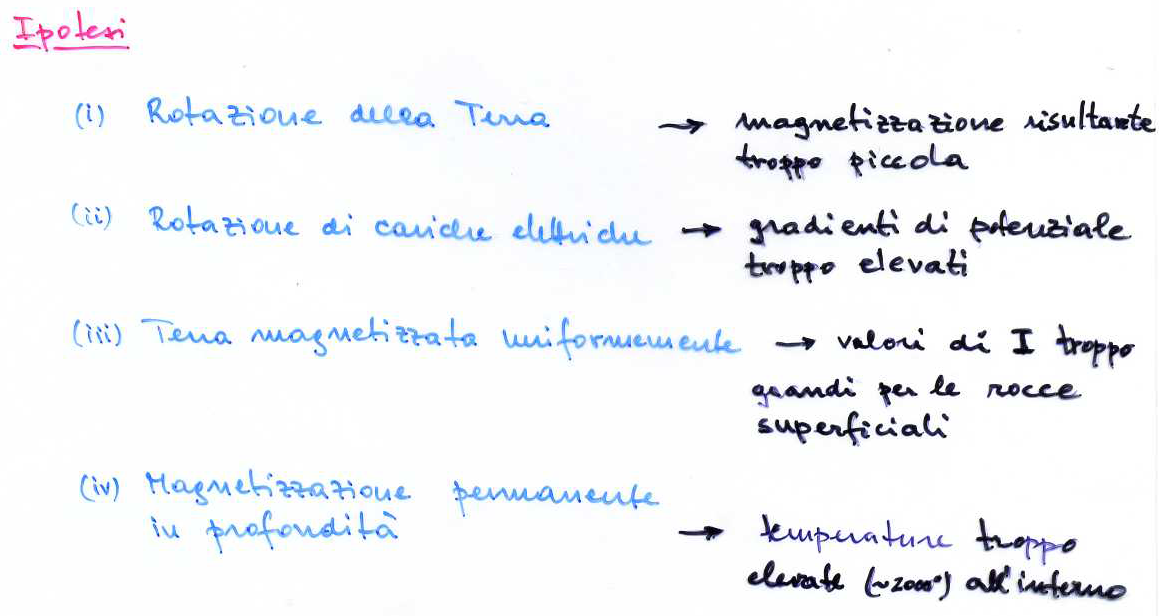 Ipotesi
(i) Rotazione della Terra → magnetizzazione risultante
troppo piccola
(ii) Rotazione di cariche elettriche → gradienti di potenziale
troppo elevati
(iii) Terra magnetizzata uniformemente → valori di I troppo
grandi per le rocce
superficiali
(iv) Magnetizzazione permanente
in profondità → temperature troppo
elevate (~2000°) all'interno